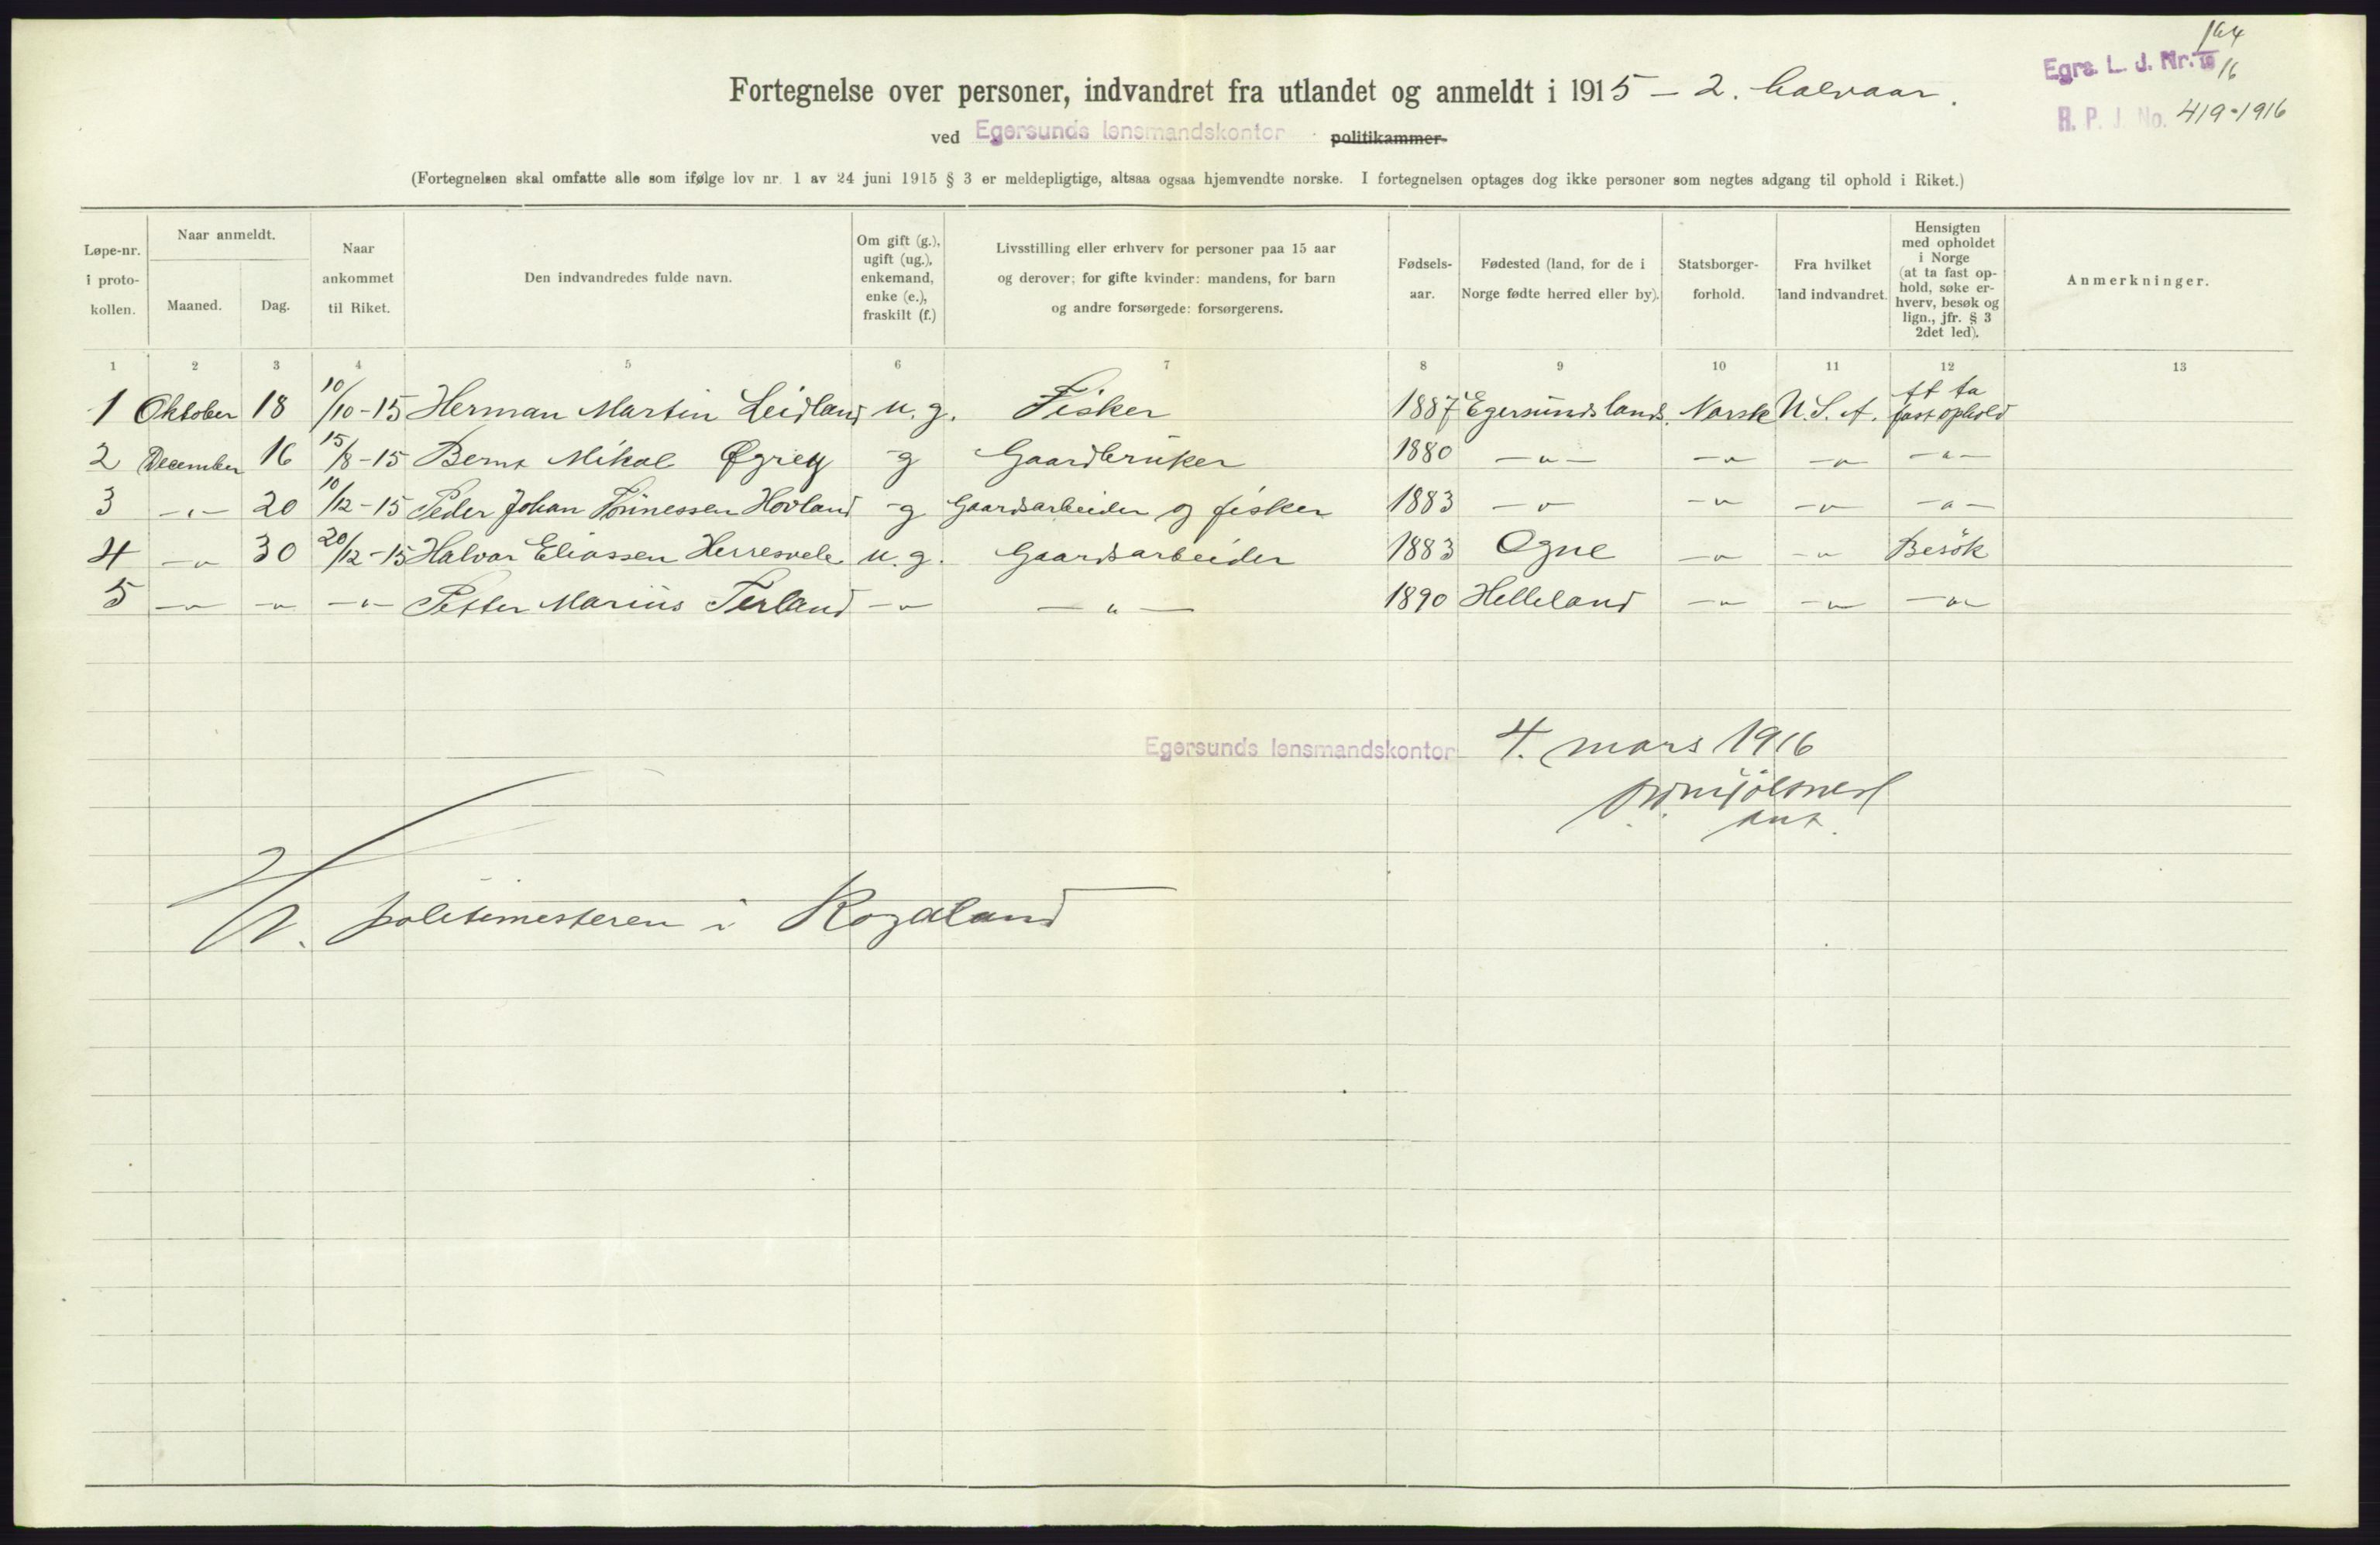 164
Egrs. L. J. Nr. 19 16
R. P. J. No. 419-1916
Fortegnelse over personer, indvandret fra utlandet og anmeldt i 1915 – 2. halvaar.
ved Egersunds lensmandskontor politikammer
(Fortegnelsen skal omfatte alle som ifølge lov nr. 1 av 24 juni 1915 § 3 er meldepligtige, altsaa ogsaa hjemvendte norske. I fortegnelsen optages dog ikke personer som negtes adgang til ophold i Riket.)
Løpe-nr. i proto- kollen.
Naar anmeldt.
Maaned.
Dag.
Naar ankommet til Riket.
Den indvandredes fulde navn.
Om gift (g.), ugift (ug.), enkemand, enke (e.), fraskilt (f.)
Livsstilling eller erhverv for personer paa 15 aar og derover; for gifte kvinder: mandens, for barn og andre forsørgede: forsørgerens.
Fødsels- aar.
Fødested (land, for de i Norge fødte herred eller by).
Statsborger- forhold.
Fra hvilket land indvandret.
Hensigten med opholdet i Norge (at ta fast op- hold, søke er- hverv, besøk og lign., jfr. § 3 2det led).
Anmerkninger.
1 2 3 4 5 6 7 8 9 10 11 12 13
1 Oktober 18 10/10-15 Herman Martin Leidland u.g. Fisker 1887 Egersunds lands. Norsk U.S.A. At ta fast ophold
2 December 16 15/8-15 Bernt Mikal Øgrey g Gaardbruker 1880 –"– –"– –"– –"–
3 –"– 20 10/12-15 Peder Johan Tönnessen Hovland g Gaardsarbeider og fisker 1883 –"– –"– –"– –"–
4 –"– 30 20/12-15 Halvor Eliassen Herresvele u.g. Gaardsarbeider 1883 Ogne –"– –"– Besök
5 –"– –"– –"– Petter Marius Terland –"– –"– 1890 Helleland –"– –"– –"–
Egersunds lensmandskontor 4. mars 1916
politimesteren i Rogaland